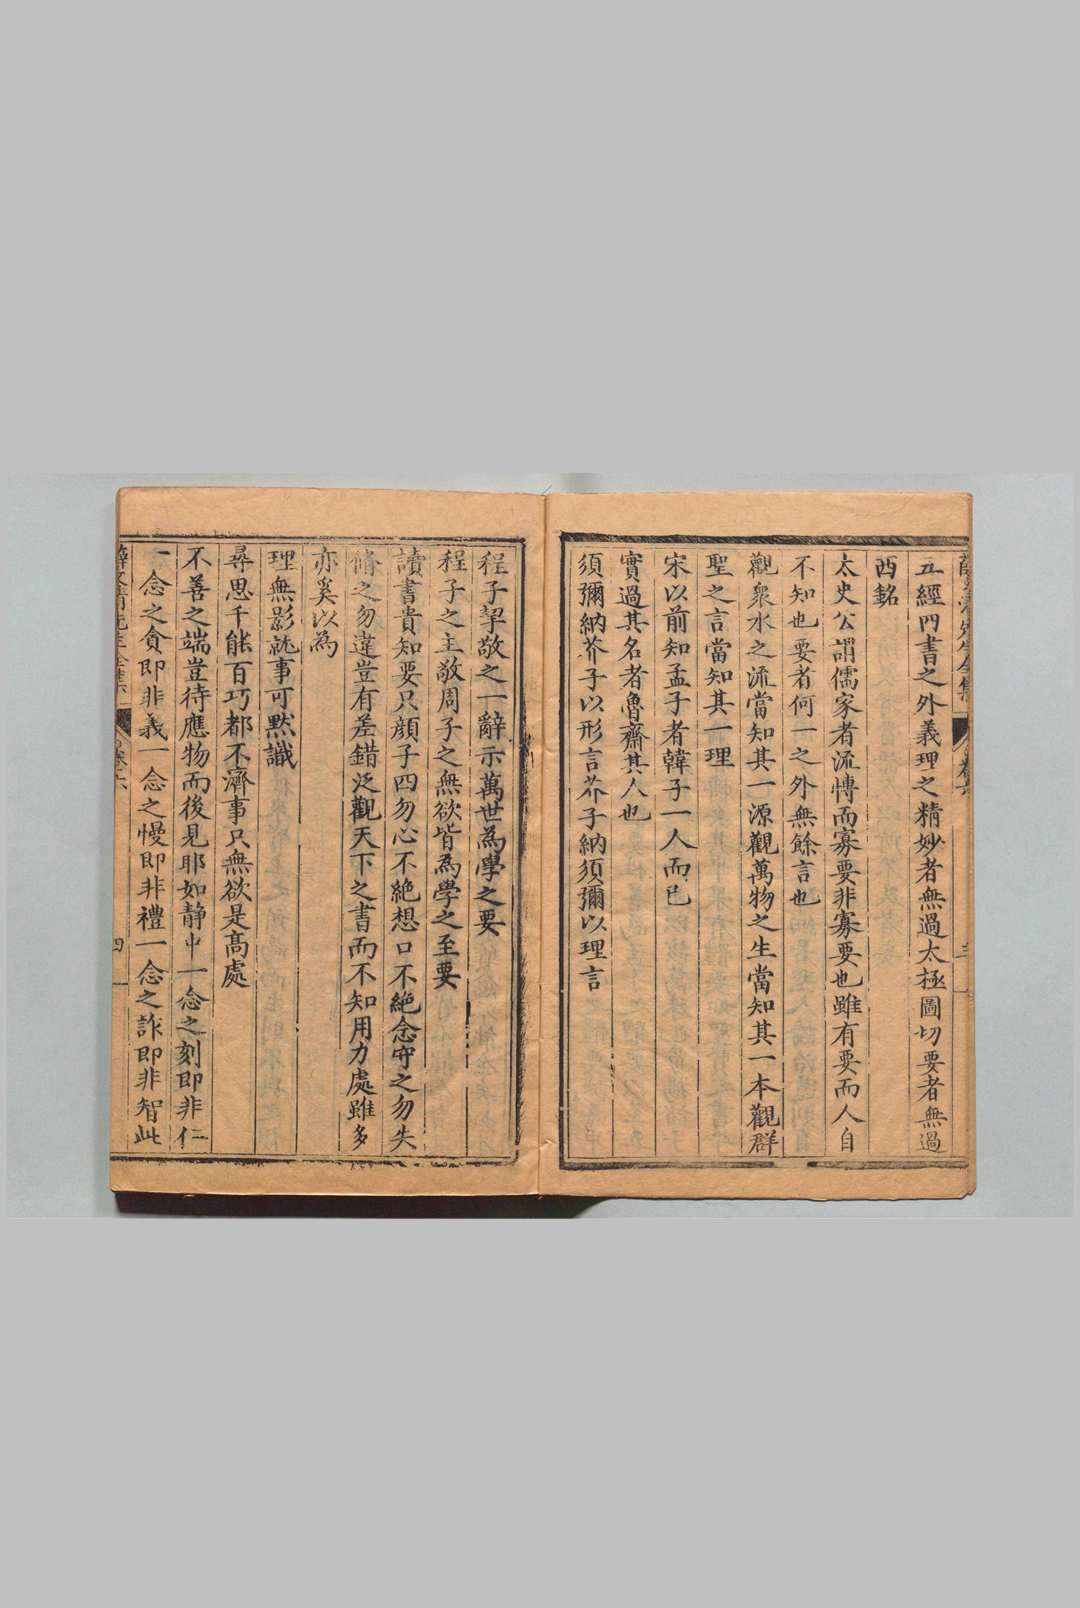 五經四書之外義理之精妙者無過太極圖切要者無過
西銘
太史公謂儒家者流博而寡要非寡要也雖有要而人自
不知也要者何一之外無餘言也
觀衆水之流當知其一源觀萬物之生當知其一本觀群
聖之言當知其一理
宋以前知孟子者韓子一人而已
實過其名者魯齋其人也
須彌納芥子以形言芥子納須彌以理言
程子挈敬之一辭示萬世為學之要
程子之主敬周子之無欲皆為學之至要
讀書貴知要只顔子四勿心不絕想口不絕念守之勿失
脩之勿違豈有差錯泛觀天下之書而不知用力處雖多
亦奚以為
理無影就事可默識
尋思千能百巧都不濟事只無欲是高處
不善之端豈待應物而後見耶如静中一念之刻即非仁
一念之貪即非義一念之慢即非禮一念之詐即非智此
薛文清先生全集
卷之六
四